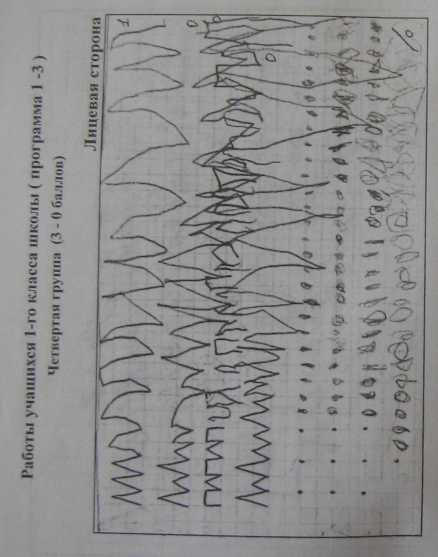 Работы учащихся 1-го класса школы ( программа 1 -3 )
Четвертая группа (3 - 0 баллов)
Лицевая сторона
1
0
0
0